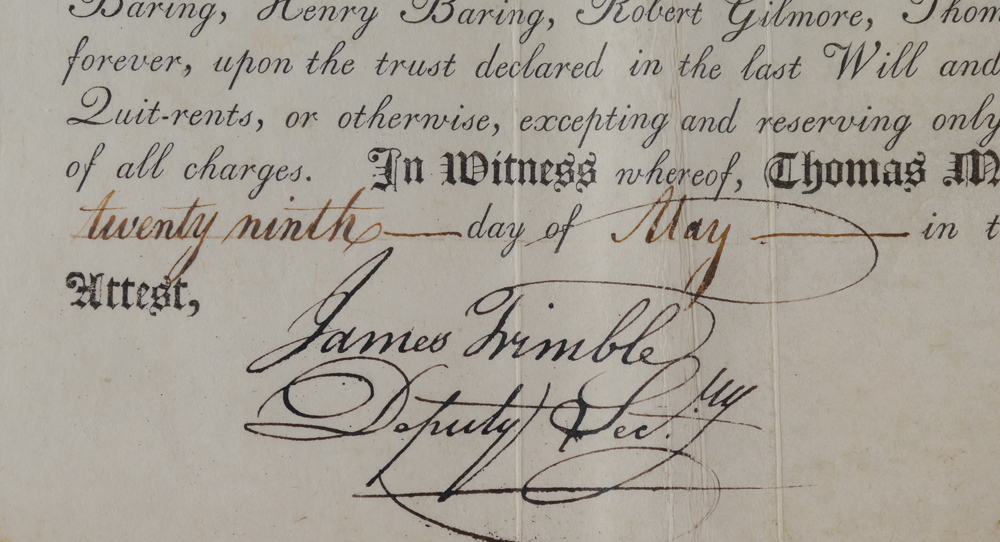 Baring, Henry Baring, Robert Gilmore, Thom
forever, upon the trust declared in the last Will and
Quit-rents, or otherwise, excepting and reserving only
of all charges. In Witness whereof, Thomas M
twenty ninth day of May in t
Attest,
James Trimble
Deputy Sec.ry